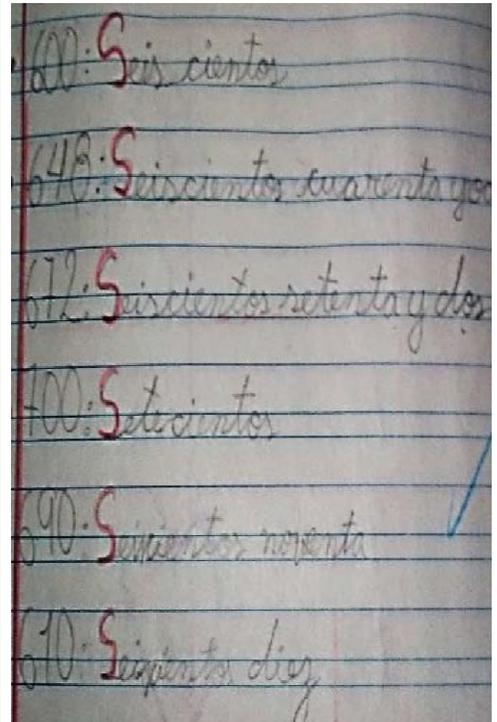 600: Seis cientos
648: Seiscientos cuarenta y oc
672: Seiscientos setenta y dos
700: Setecientos
690: Seiscientos noventa
610: Seiscientos diez